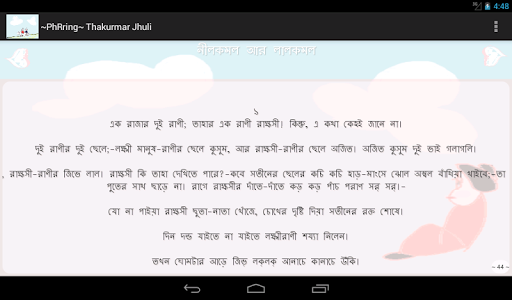 4:48
~PhRring~ Thakurmar Jhuli
নীলকমল আর লালকমল
১
এক রাজার দুই রাণী; তাহার এক রাণী রাক্ষসী। কিন্তু, এ কথা কেহই জানে না।
দুই রাণীর দুই ছেলে;-লক্ষ্মী মানুষ-রাণীর ছেলে কুসুম, আর রাক্ষসী-রাণীর ছেলে অজিত। অজিত কুসুম দুই ভাই গলাগলি।
রাক্ষসী-রাণীর জিভে লাল। রাক্ষসী কি তাহা দেখিতে পারে?-কবে সতীনের ছেলের কচি কচি হাড়-মাংসে ঝোল অম্বল রাঁধিয়া খাইবে;-তা
পুতের সাথ ছাড়ে না। রাগে রাক্ষসীর দাঁতে-দাঁতে কড় কড় পাঁচ পরাণ সর্ সর্।-
যো না পাইয়া রাক্ষসী ছুতা-নাতা খোঁজে, চোখের দৃষ্টি দিয়া সতীনের রক্ত শোষে।
দিন দন্ড যাইতে না যাইতে লক্ষ্মীরাণী শয্যা নিলেন।
তখন ঘোমটার আড়ে জিভ্ লক্‌লক্ আনাচে কানাচে উঁকি।
~ 44 ~